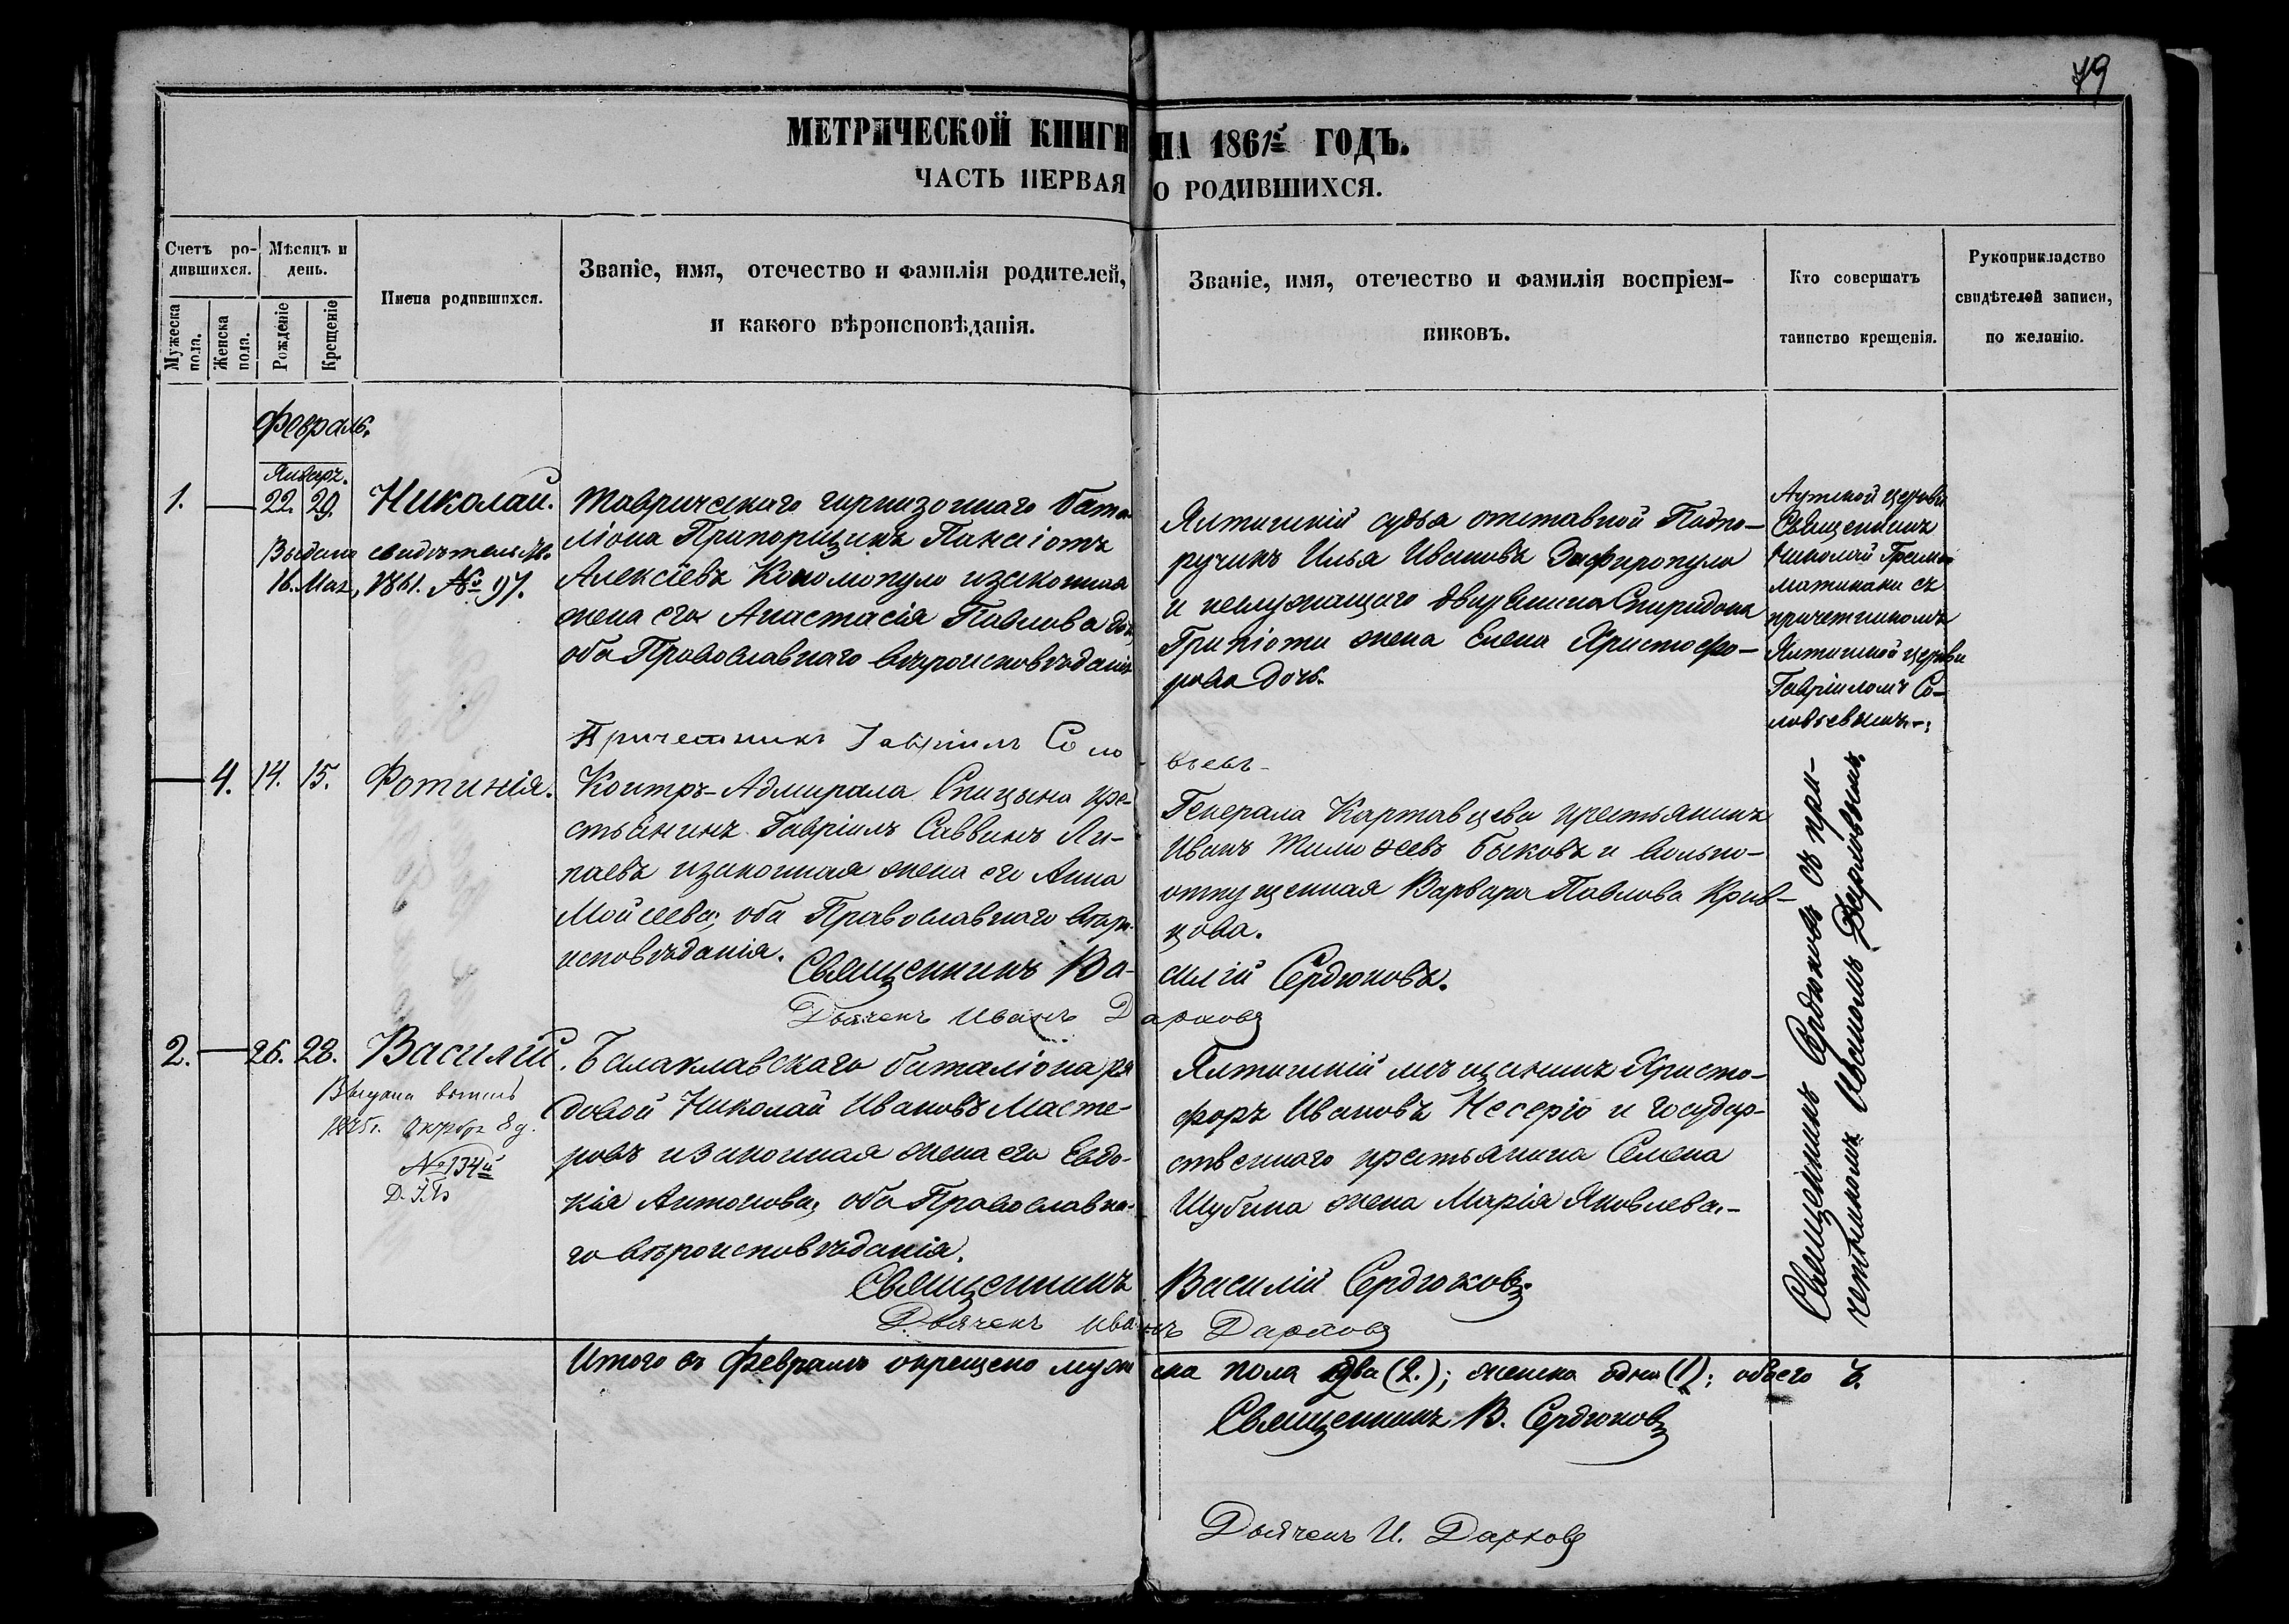 79
МЕТРИЧЕСКОЙ КНИГИ НА 1861й ГОДЪ.
ЧАСТЬ ПЕРВАЯ О РОДИВШИХСЯ.
Счетъ ро-
дившихся.
Мужеска
пола.
Женска
пола.
Мѣсяцъ и
день.
Рожденіе
Крещеніе
Имена родившихся.
Званіе, имя, отечество и фамилія родителей,
и какого вѣроисповѣданія.
Званіе, имя, отечество и фамилія воспріем-
никовъ.
Кто совершалъ
таинство крещенія.
Рукоприкладство
свидѣтелей записи,
по желанію.
Февраль.
Январь.
1. 22. 29. Николай.
Выдано свидѣтельство
16. Мая, 1861. № 97.
Таврическаго гарнизоннаго бата-
ліона Прапорщикъ Панаіотъ
Алексѣевъ Кономопуло и законная
жена его Анастасія Павлова дочь,
оба Православнаго вѣроисповѣданія
Ялтинскій судья отставной Подпо-
ручикъ Илья Ивановъ Зафиропуло
и неслужащаго дворянина Спиридона
Грипіоти жена Елена Христофо-
рова дочь.
Аутской церкви
Священникъ
Николай
съ
причетникомъ
Ялтинской церкви
Гавріиломъ Со-
ловьевымъ.
Причетникъ Гавріилъ Соло-
вьевъ
4. 14. 15. Фотинія.
Контръ-Адмирала Спицына кре-
стьянинъ Гавріилъ Саввинъ Ли-
паевъ и законная жена его Анна
Мойсеева, оба Православнаго вѣро-
исповѣданія.
Генерала Картавцева крестьянинъ
Иванъ Тимофеевъ Быковъ и вольно-
отпущенная Варвара Павлова Крив-
цова.
Священникъ Ва-
силій Сердюковъ.
Дьячекъ Иванъ Дарковъ
Священникъ Сердюковъ съ при-
четникомъ Иваномъ Дарковымъ
2. 26. 28. Василій.
Октября 8 д.
№ 134й
Балаклавскаго баталіона ря-
довой Николай Ивановъ Масте-
ровъ и законная жена его Евдо-
кія Антонова, оба Православна-
го вѣроисповѣданія.
Ялтинскій мѣщанинъ Христо-
форъ Ивановъ Несеріо и государ-
ственнаго крестьянина Семена
Шубина жена Марія Яковлева.
Священникъ Василій Сердюковъ
Дьячекъ Иванъ Дарковъ
Итого въ Февралѣ окрещено мужеска пола два (2.); женска одна (1); обоего 3.
Священникъ В. Сердюковъ
Дьячекъ И. Дарковъ